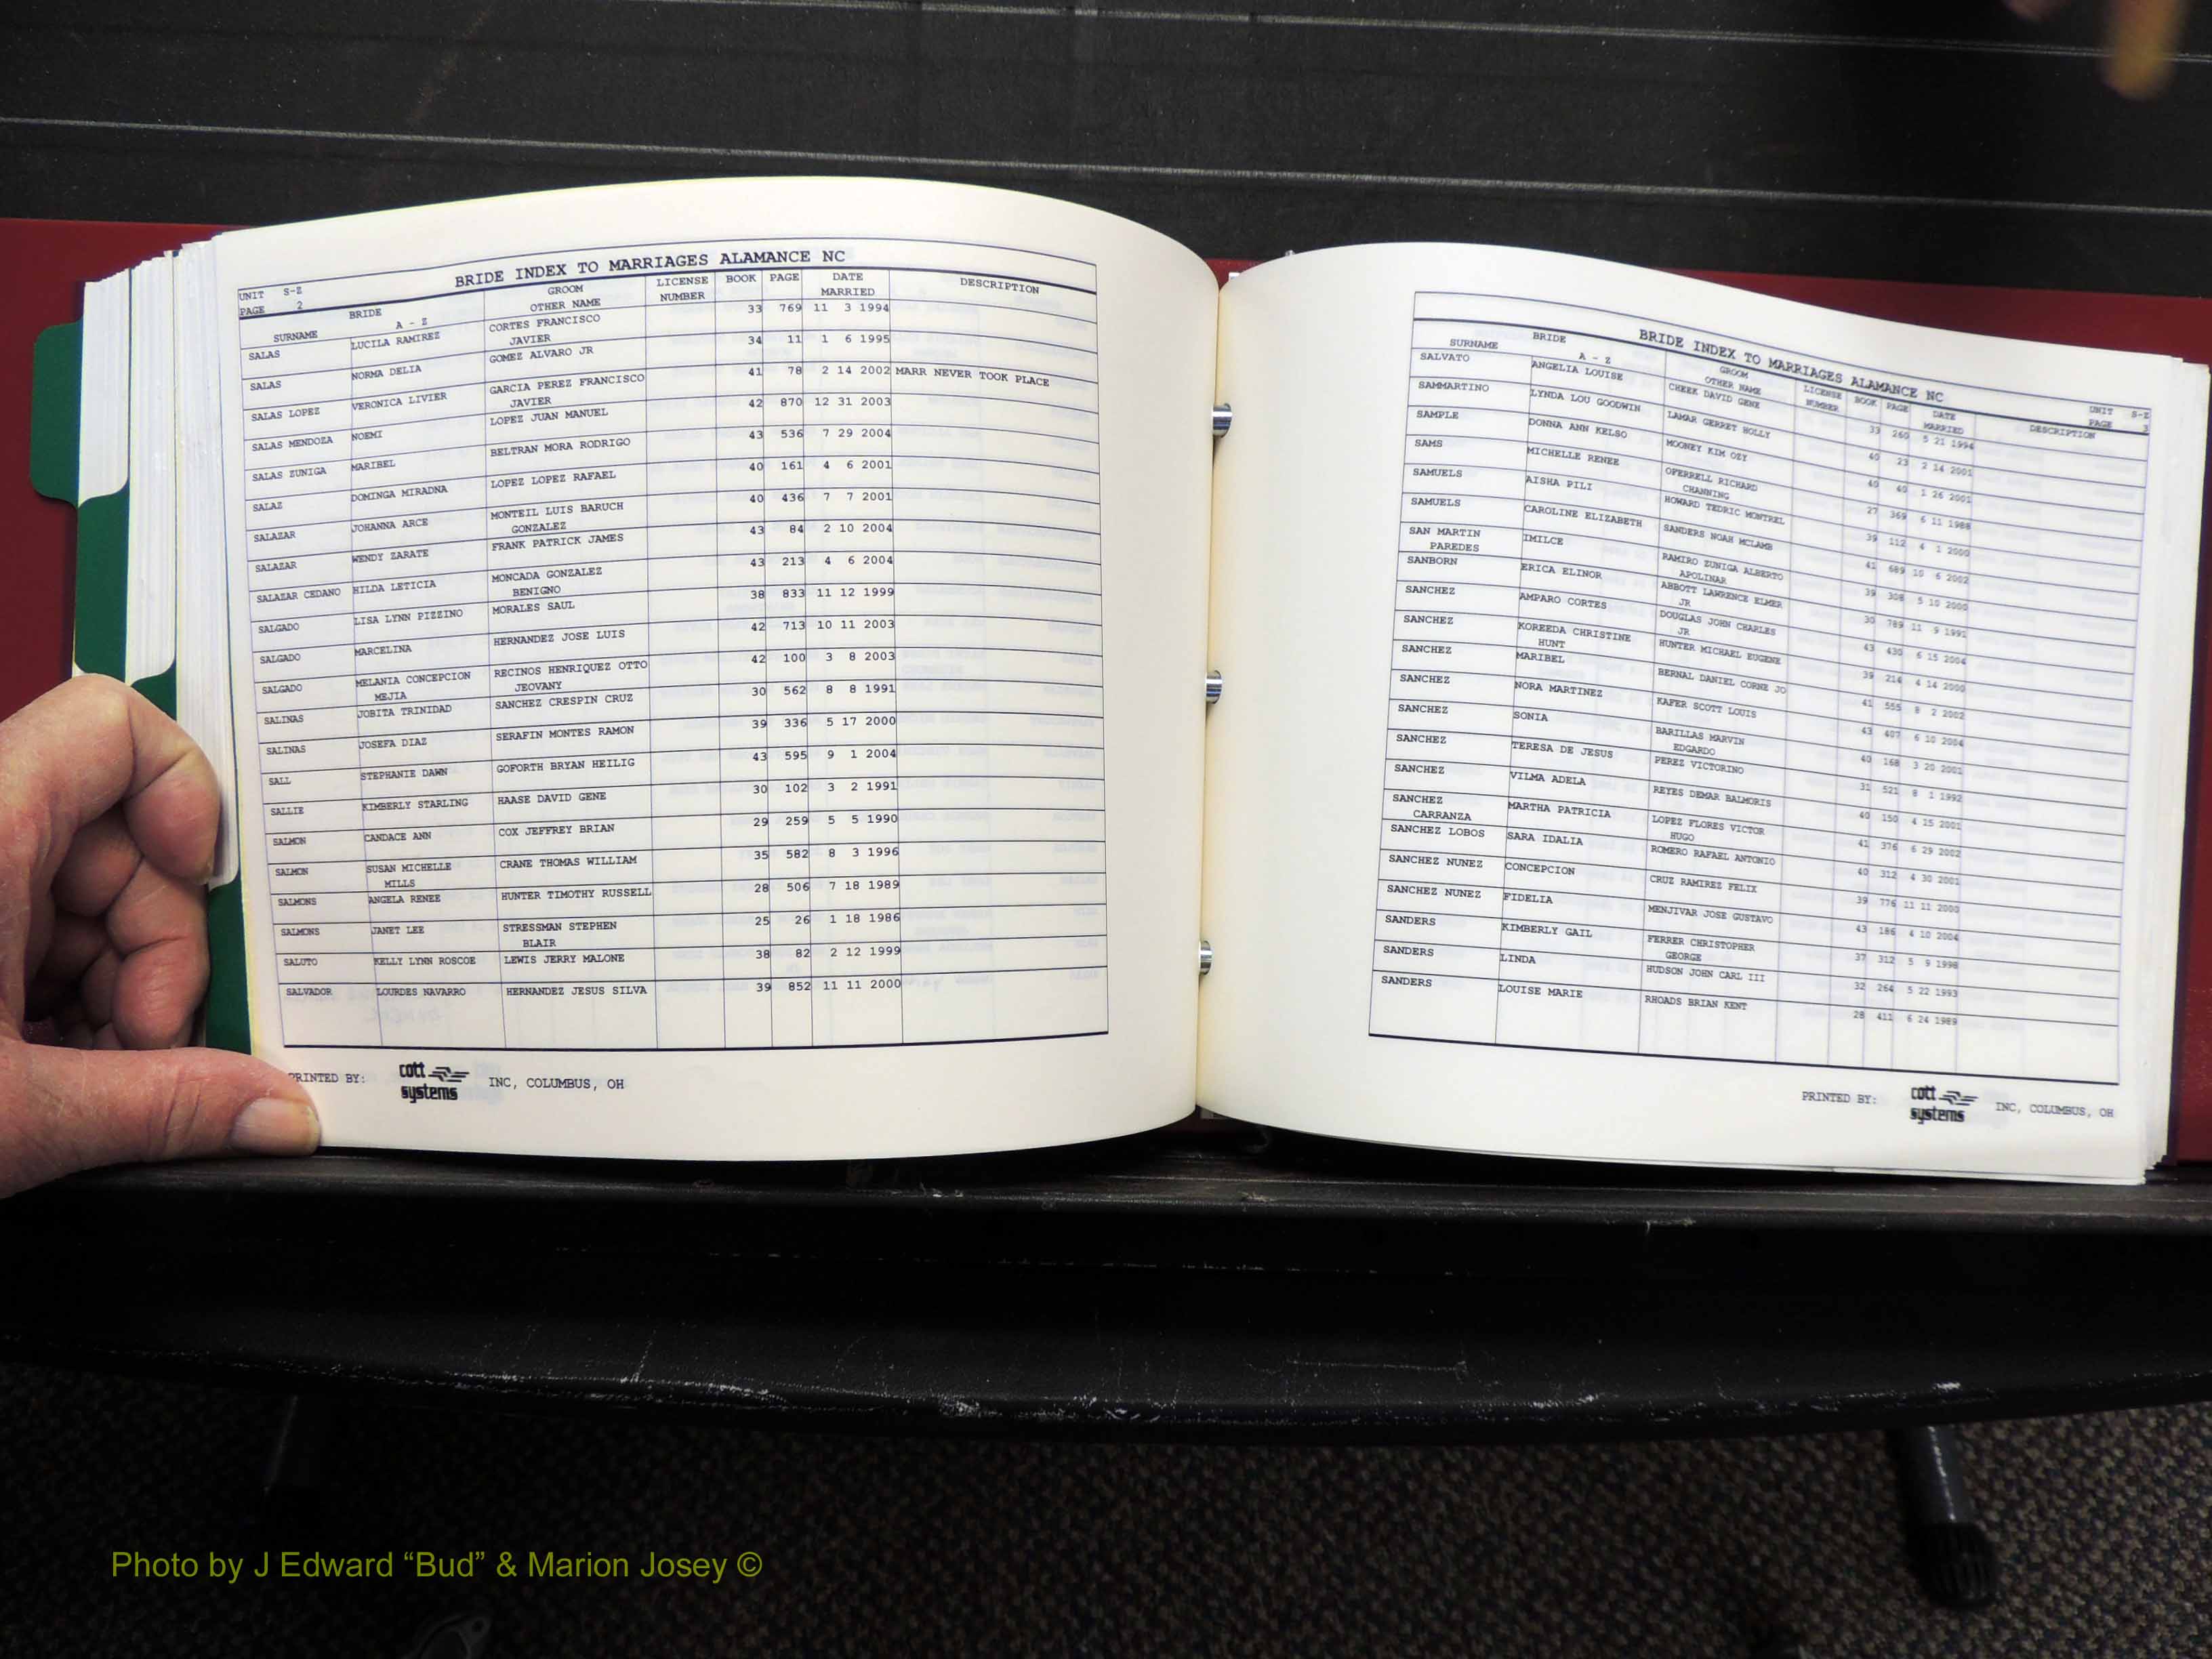 BRIDE INDEX TO MARRIAGES ALAMANCE NC
UNIT S-Z
PAGE 2
BRIDE GROOM LICENSE BOOK PAGE DATE DESCRIPTION
SURNAME A - Z OTHER NAME NUMBER MARRIED
SALAS LUCILA RAMIREZ CORTES FRANCISCO 33 769 11 3 1994
JAVIER
SALAS NORMA DELIA GOMEZ ALVARO JR 34 11 1 6 1995
SALAS LOPEZ VERONICA LIVIER GARCIA PEREZ FRANCISCO 41 78 2 14 2002 MARR NEVER TOOK PLACE
JAVIER
SALAS MENDOZA NOEMI LOPEZ JUAN MANUEL 42 870 12 31 2003
SALAS ZUNIGA MARIBEL BELTRAN MORA RODRIGO 43 536 7 29 2004
SALAZ DOMINGA MIRADNA LOPEZ LOPEZ RAFAEL 40 161 4 6 2001
SALAZAR JOHANNA ARCE MONTEIL LUIS BARUCH 40 436 7 7 2001
GONZALEZ
SALAZAR WENDY ZARATE FRANK PATRICK JAMES 43 84 2 10 2004
SALAZAR CEDANO HILDA LETICIA MONCADA GONZALEZ 43 213 4 6 2004
BENIGNO
SALGADO LISA LYNN PIZZINO MORALES SAUL 38 833 11 12 1999
SALGADO MARCELINA HERNANDEZ JOSE LUIS 42 713 10 11 2003
SALGADO MELANIA CONCEPCION RECINOS HENRIQUEZ OTTO 42 100 3 8 2003
MEJIA JEOVANY
SALINAS JOBITA TRINIDAD SANCHEZ CRESPIN CRUZ 30 562 8 8 1991
SALINAS JOSEFA DIAZ SERAFIN MONTES RAMON 39 336 5 17 2000
SALL STEPHANIE DAWN GOFORTH BRYAN HEILIG 43 595 9 1 2004
SALLIE KIMBERLY STARLING HAASE DAVID GENE 30 102 3 2 1991
SALMON CANDACE ANN COX JEFFREY BRIAN 29 259 5 5 1990
SALMON SUSAN MICHELLE CRANE THOMAS WILLIAM 35 582 8 3 1996
MILLS
SALMONS ANGELA RENEE HUNTER TIMOTHY RUSSELL 28 506 7 18 1989
SALMONS JANET LEE STRESSMAN STEPHEN 25 26 1 18 1986
BLAIR
SALUTO KELLY LYNN ROSCOE LEWIS JERRY MALONE 38 82 2 12 1999
SALVADOR LOURDES NAVARRO HERNANDEZ JESUS SILVA 39 852 11 11 2000
PRINTED BY: cott systems INC, COLUMBUS, OH
BRIDE INDEX TO MARRIAGES ALAMANCE NC
UNIT S-Z
PAGE 3
BRIDE GROOM LICENSE BOOK PAGE DATE DESCRIPTION
SURNAME A - Z OTHER NAME NUMBER MARRIED
SALVATO ANGELIA LOUISE CHEEK DAVID GENE 33 260 5 21 1994
SAMMARTINO LYNDA LOU GOODWIN LAMAR GERRET HOLLY 40 23 2 14 2001
SAMPLE DONNA ANN KELSO MOONEY KIM OZY 40 40 1 26 2001
SAMS MICHELLE RENEE OFERRELL RICHARD 27 369 6 11 1988
CHANNING
SAMUELS AISHA PILI HOWARD TEDRIC MONTREL 39 112 4 1 2000
SAMUELS CAROLINE ELIZABETH SANDERS NOAH MCLAMB 41 689 10 6 2002
SAN MARTIN IMILCE RAMIRO ZUNIGA ALBERTO 39 308 5 10 2000
PAREDES APOLINAR
SANBORN ERICA ELINOR ABBOTT LAWRENCE ELMER 30 789 11 9 1991
JR
SANCHEZ AMPARO CORTES DOUGLAS JOHN CHARLES 43 430 6 15 2004
JR
SANCHEZ KOREEDA CHRISTINE HUNTER MICHAEL EUGENE 39 214 4 14 2000
HUNT
SANCHEZ MARIBEL BERNAL DANIEL CORNE JO 41 555 8 2 2002
SANCHEZ NORA MARTINEZ KAFER SCOTT LOUIS 43 407 6 10 2004
SANCHEZ SONIA BARILLAS MARVIN 40 168 3 20 2001
EDGARDO
SANCHEZ TERESA DE JESUS PEREZ VICTORINO 31 521 8 1 1992
SANCHEZ VILMA ADELA REYES DEMAR BALMORIS 40 150 4 15 2001
SANCHEZ MARTHA PATRICIA LOPEZ FLORES VICTOR 41 376 6 29 2002
CARRANZA HUGO
SANCHEZ LOBOS SARA IDALIA ROMERO RAFAEL ANTONIO 40 312 4 30 2001
SANCHEZ NUNEZ CONCEPCION CRUZ RAMIREZ FELIX 39 776 11 11 2000
SANCHEZ NUNEZ FIDELIA MENJIVAR JOSE GUSTAVO 43 186 4 10 2004
SANDERS KIMBERLY GAIL FERRER CHRISTOPHER 37 312 5 9 1998
GEORGE
SANDERS LINDA HUDSON JOHN CARL III 32 264 5 22 1993
SANDERS LOUISE MARIE RHOADS BRIAN KENT 28 411 6 24 1989
PRINTED BY: cott systems INC, COLUMBUS, OH
Photo by J Edward “Bud” & Marion Josey ©